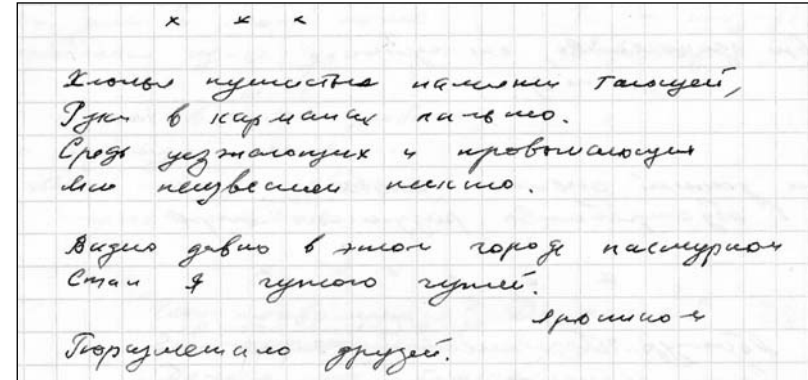 х х х
Хлопья пушистые памяти тающей,
Руки в карманах пальто.
Средь уезжающих и провожающих
Мне неизвестен никто.
Видно давно в этом городе пасмурном
Стал я чужого чужей.
Пораzметало друзей.